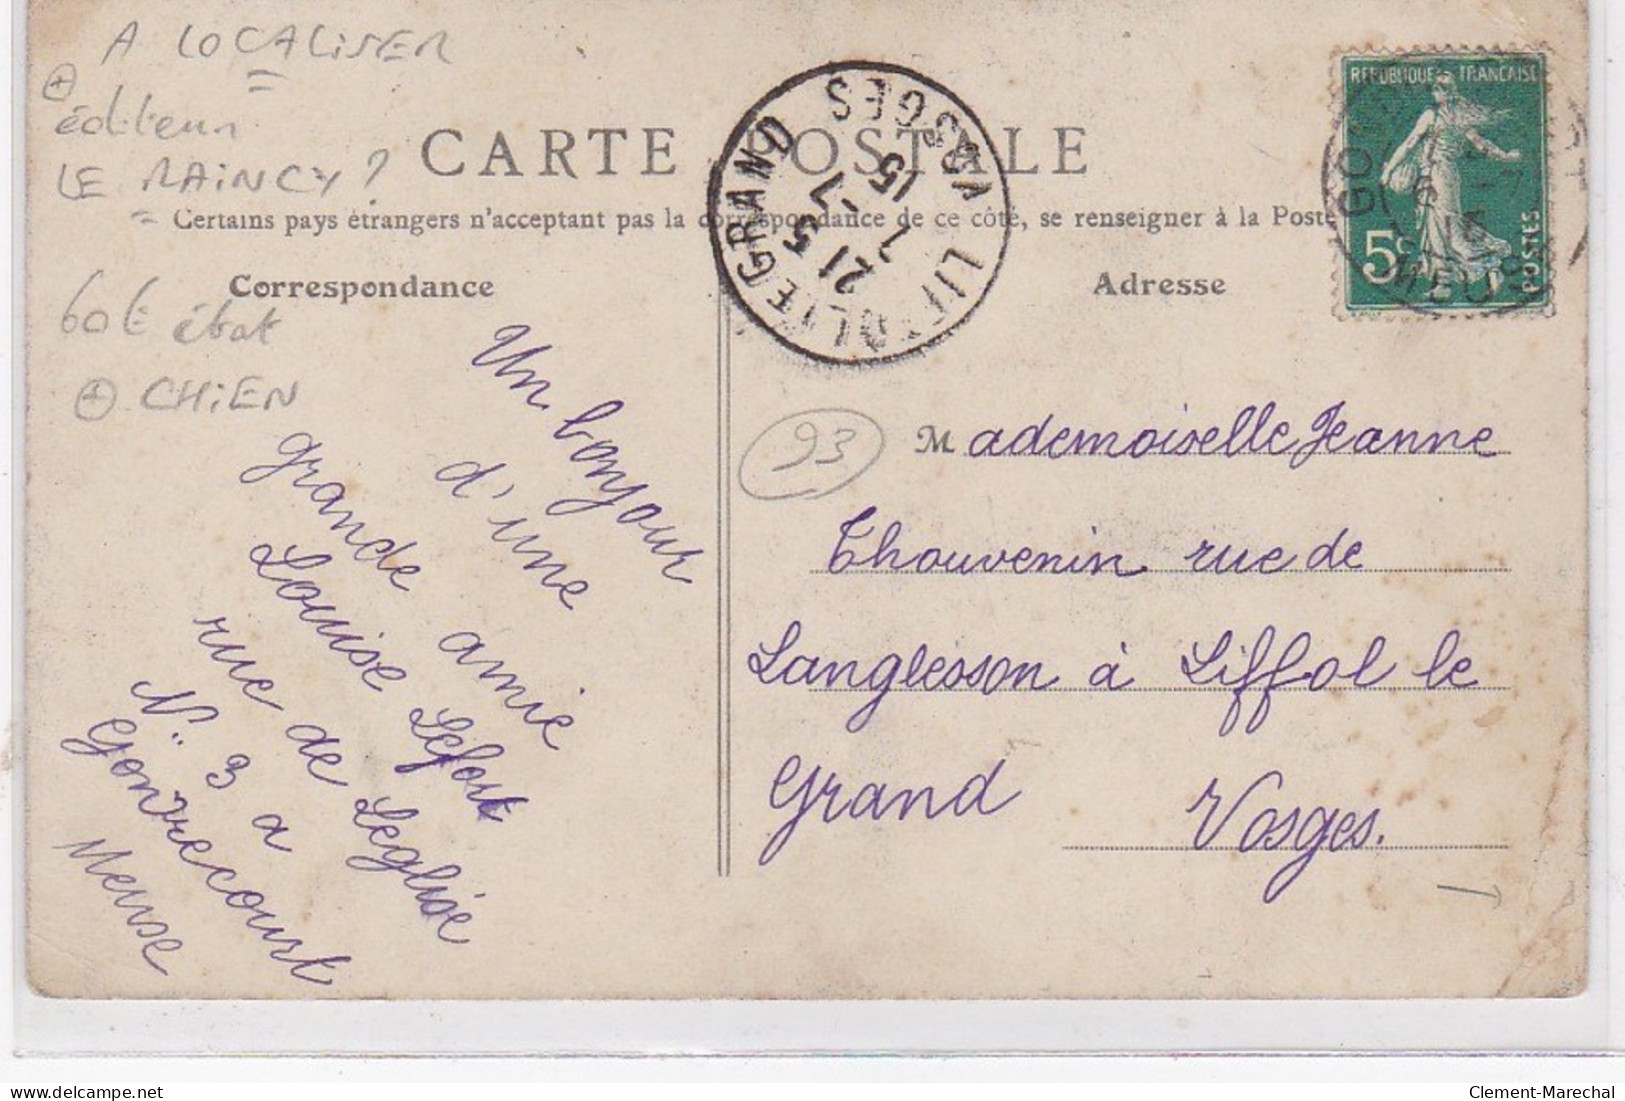 A LOCALISER
+ éditeur
LE RAINCY ?
CARTE POSTALE
Certains pays étrangers n'acceptent pas la correspondance de ce côté, se renseigner à la Poste
Correspondance
Adresse
60€ état
+ CHIEN
LIFFOL-LE-GRAND VOSGES
21 5
7 -7
15
REPUBLIQUE FRANÇAISE
5c
POSTES
MEUSE
93
Un bonjour
d'une
grande amie
Louise Lefort
rue de Leglise
N° 3 a
Gondrecourt
Meuse
Mademoiselle Jeanne
Thouvenin rue de
Langlesson à Liffol le
Grand Vosges.
Clement-Marechal